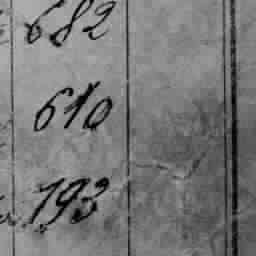 682
610
193